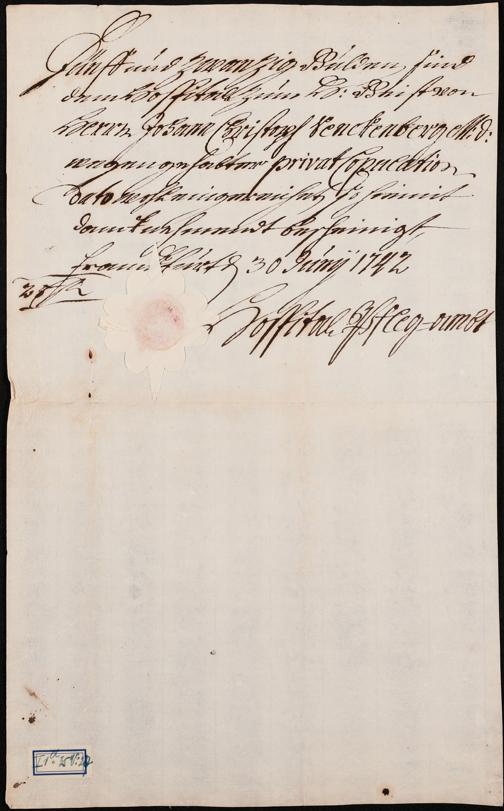 Fünff und zwantzig Gulden, sind
dem Hospital zum H: Geist von
Herrn Johann Christoph Senckenberg M: D:
wegen gehabter privat Copulation
dato wohl eingereichet, so hiemit
danknehmendt bescheiniget,
Franckfurth d 30 Junÿ 1742
25 fl
Hospital Pfleg-ambt